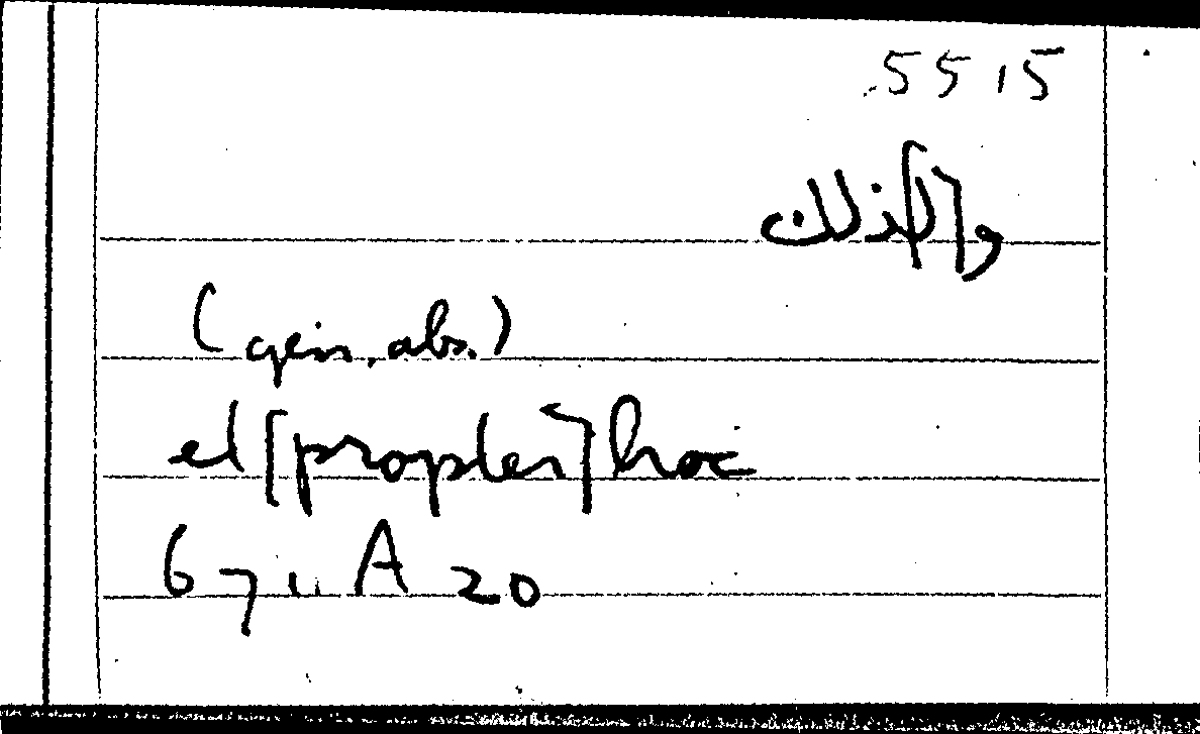 5515
و[ا]لذلك
(gen. abs.)
et [propter] hoc
671a A 20